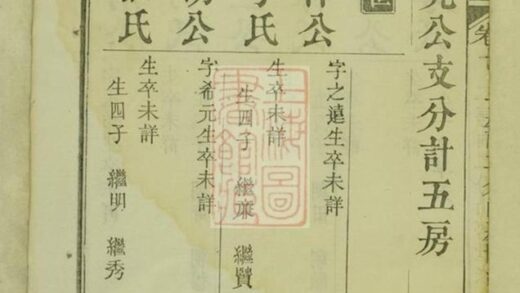 公支分計五房
公
字之達生卒未詳
氏
生卒未詳
生四子 繼 繼賢
公
字希元生卒未詳
氏
生卒未詳
生四子 繼明 繼秀
上海圖書館藏